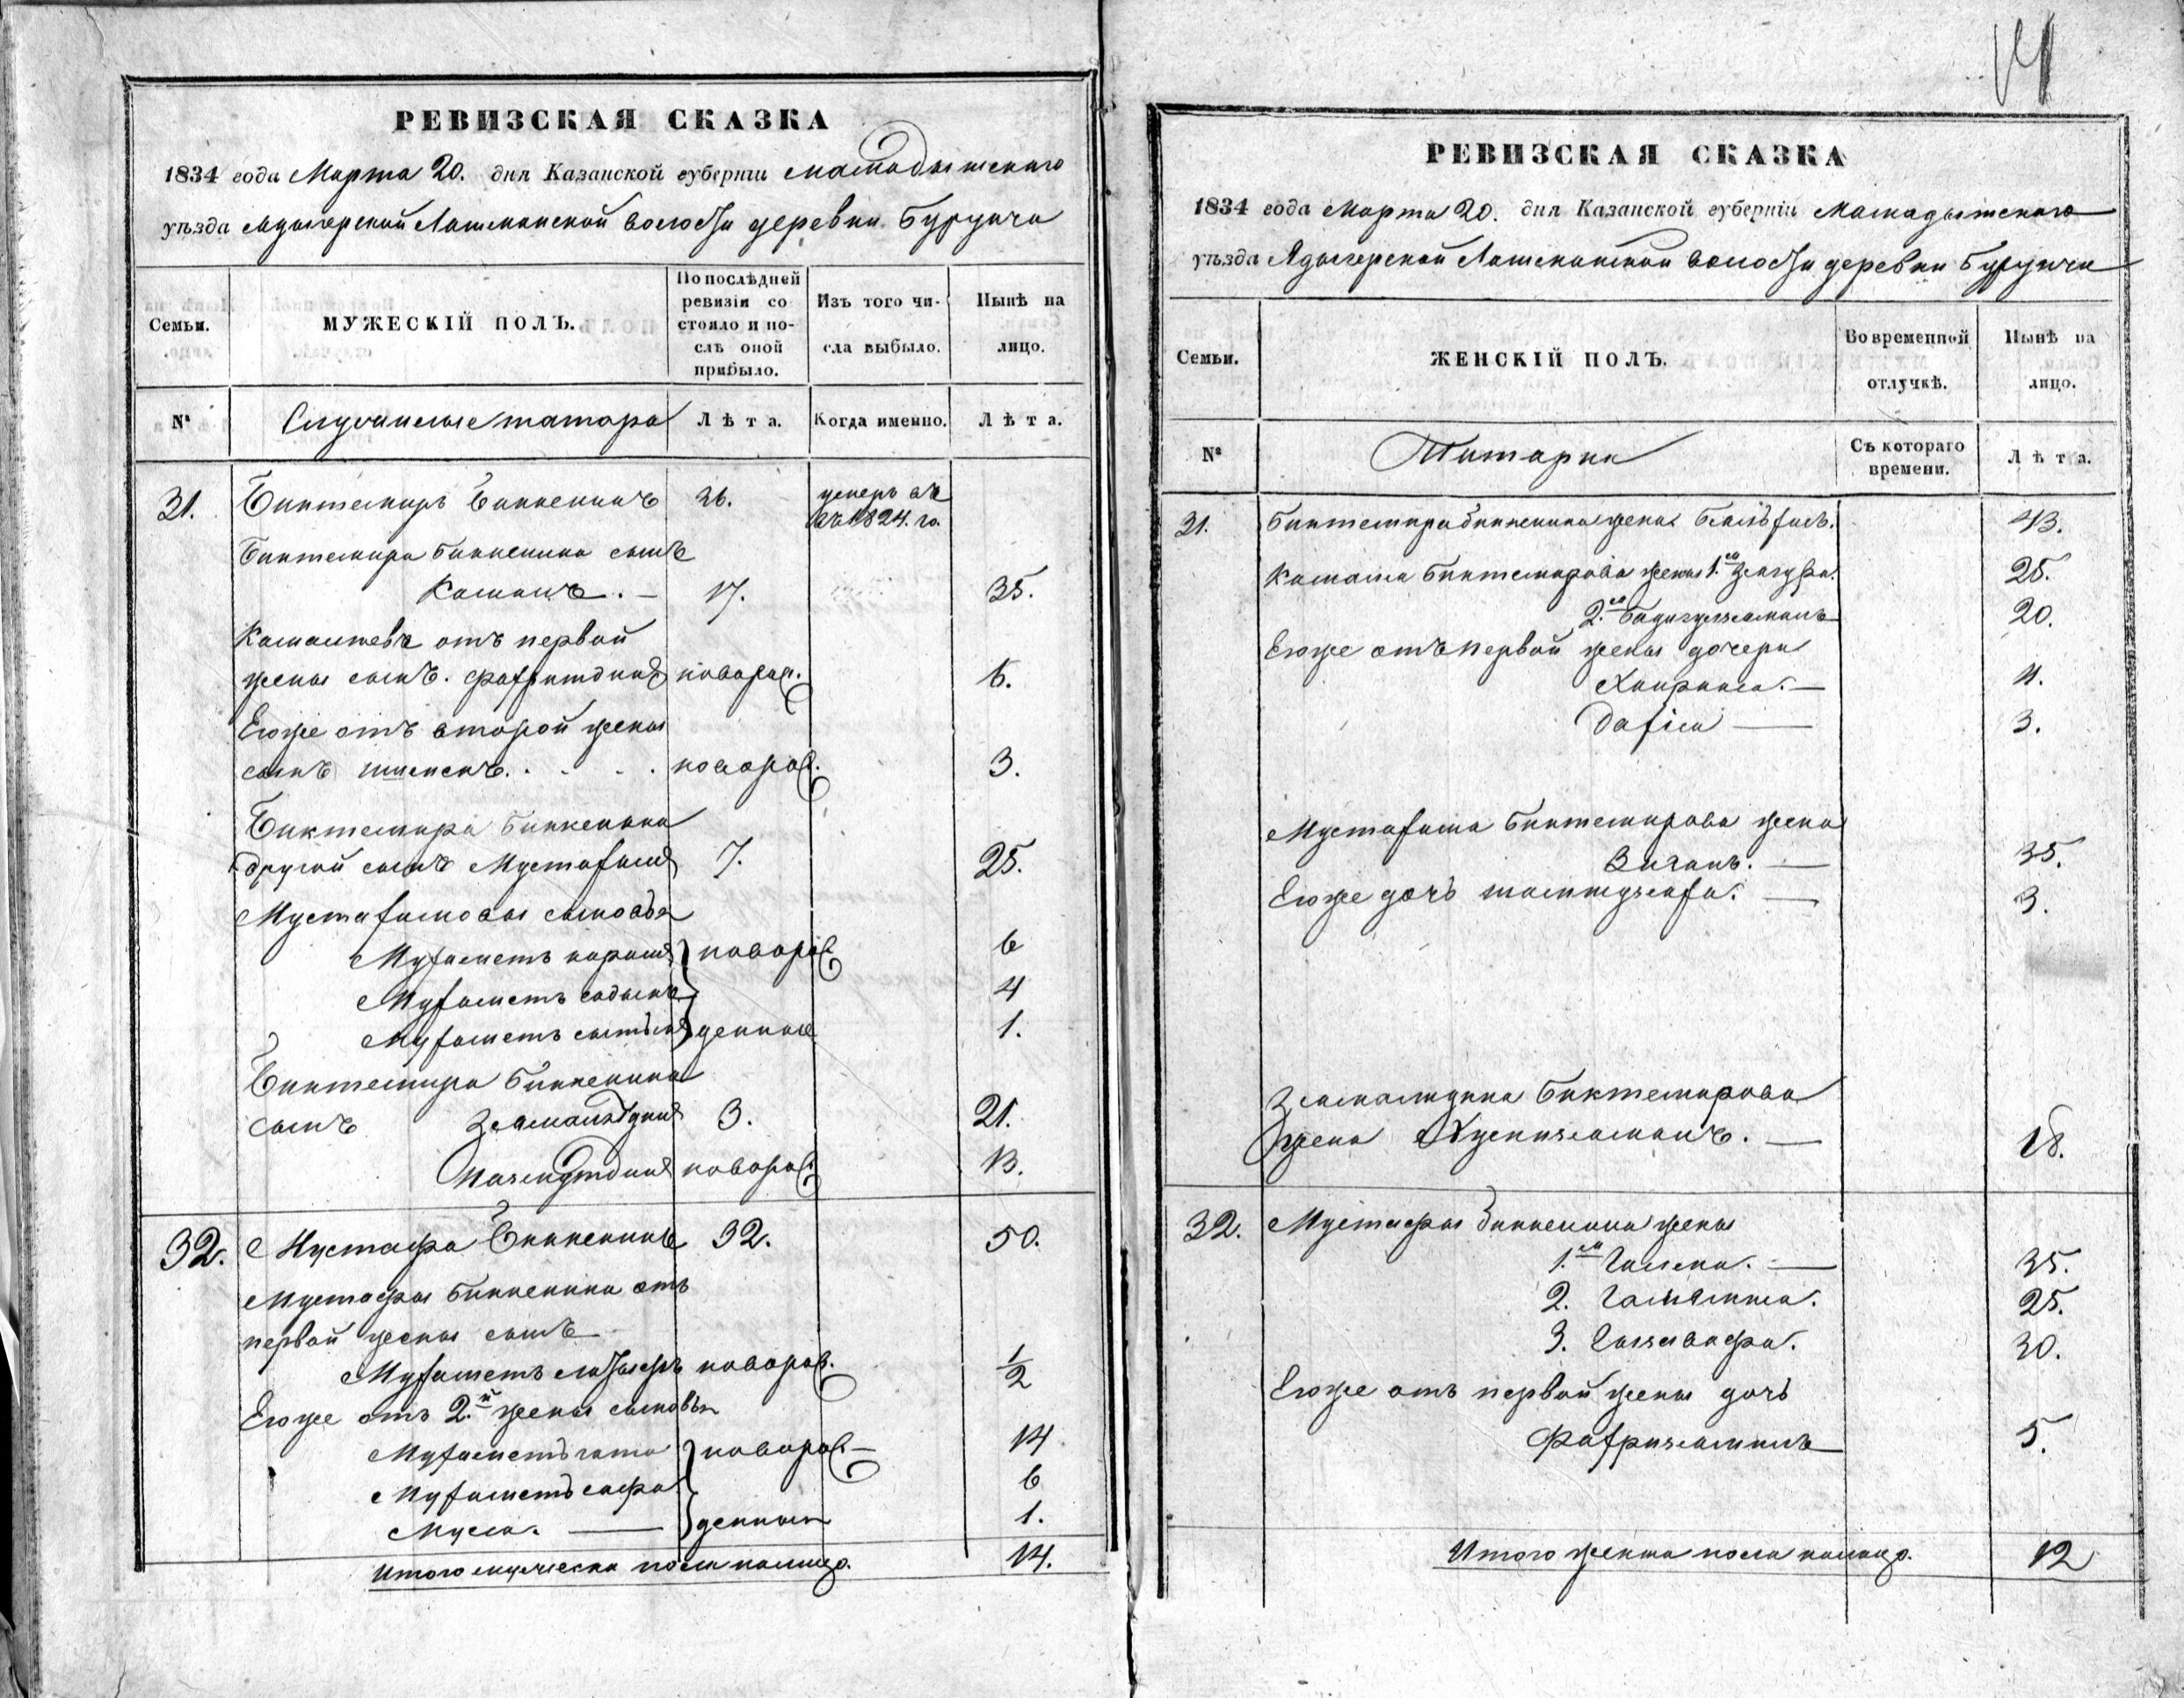 14
РЕВИЗСКАЯ СКАЗКА
1834 года Марта 20. дня Казанской губерніи Мамадышскаго
уѣзда Адыгерской Лашманской волости деревни Бурунчи
Семьи.
МУЖЕСКІЙ ПОЛЪ.
По послѣдней ревизіи состояло и послѣ оной прибыло.
Изъ того числа выбыло.
Нынѣ на лицо.
№
Служилые татара
Лѣта.
Когда именно.
Лѣта.
31. Биктемиръ Биккенинъ 26. умеръ въ 1824. го.
Биктемира Биккенина сынъ
Камаль. 17. 35.
Камалтевъ отъ первой
жены сынъ. Фахритдинъ новорож. 6.
Егоже отъ второй жены
сынъ новорож. 3.
Биктемира Биккенина
другой сынъ Мустафинъ 7. 25.
Мустафиновы сыновья
Мухаметъ каримъ новорож 6
Мухаметъ садыкъ 4
Мухаметъ денные 1.
Биктемира Биккенина
сынъ Земалетдинъ 3. 21.
новорож. 13.
32. Мустафа Биккенинъ 32. 50.
Мустафы Биккенина отъ
первой жены сынъ
Мухаметъ новорож. 1/2
Егоже отъ 2.й жены сыновья
Мухаметъ гата новорож 14
Мухаметъ сафа 6
Муса. денные 1.
Итого мужеска пола налицо. 14.
РЕВИЗСКАЯ СКАЗКА
1834 года Марта 20. дня Казанской губерніи Мамадышскаго
уѣзда Адыгерской Лашманской волости деревни Бурунчи
Семьи.
ЖЕНСКІЙ ПОЛЪ.
Во временной отлучкѣ.
Нынѣ на лицо.
№
Татарки
Съ котораго времени.
Лѣта.
31. Биктемира Биккенина жена 43.
Камала Биктемирова жены 1.ая 25.
2.ая Бадигулзямалъ 20.
Егоже отъ первой жены дочери
4.
3.
Биктемирова жена
35.
Егоже дочь 3.
Земалидина Биктемирова
жена Хуснизямалъ. 18.
32. Мустафы Биккенина жены
1.ая 35.
2. 25.
3. 30.
Егоже отъ первой жены дочь
Фахризямалъ 5.
Итого женска пола налицо. 12